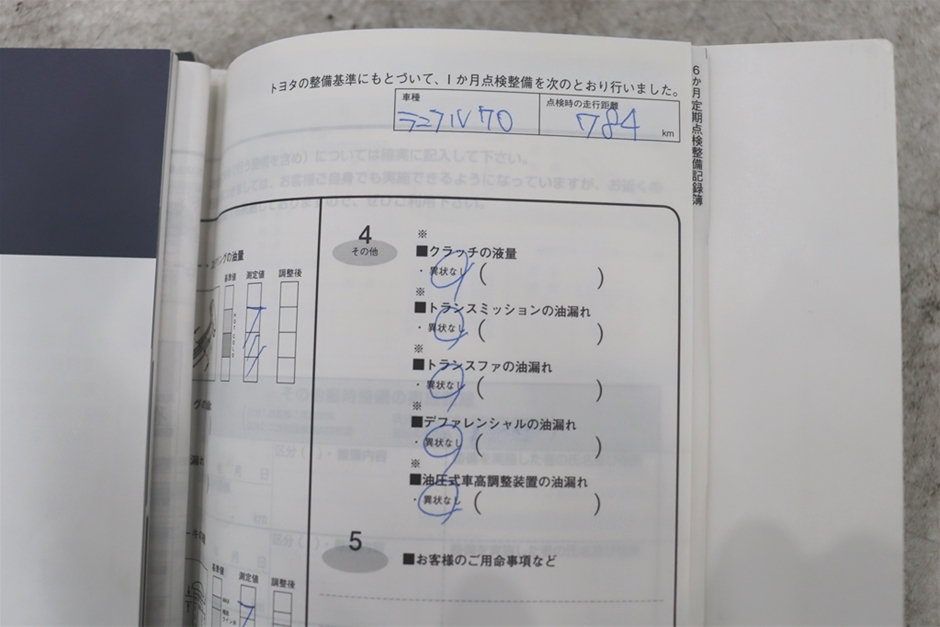 トヨタの整備基準にもとづいて、1か月点検整備を次のとおり行いました。
車種
ランクル70
点検時の走行距離
784
km
6か月定期点検整備記録簿
の油量
基準値
測定値
調整後
HOT
COLD
4
その他
※
■クラッチの液量
・異状なし( )
※
■トランスミッションの油漏れ
・異状なし( )
※
■トランスファの油漏れ
・異状なし( )
※
■デファレンシャルの油漏れ
・異状なし( )
※
■油圧式車高調整装置の油漏れ
・異状なし( )
5
■お客様のご用命事項など
基準値
測定値
調整後